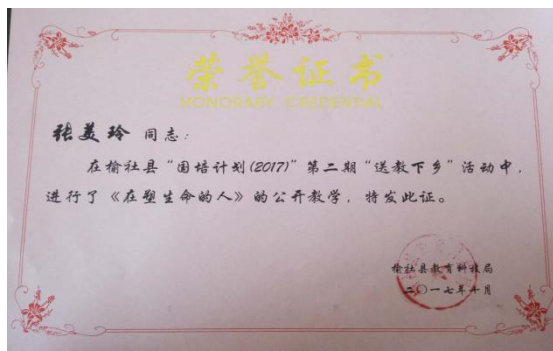 荣誉证书
HONORARY CREDENTIAL
张美玲 同志：
在榆社县“国培计划(2017)”第二期“送教下乡”活动中，
进行了《在塑生命的人》的公开教学，特发此证。
榆社县教育科技局
二〇一七年十月